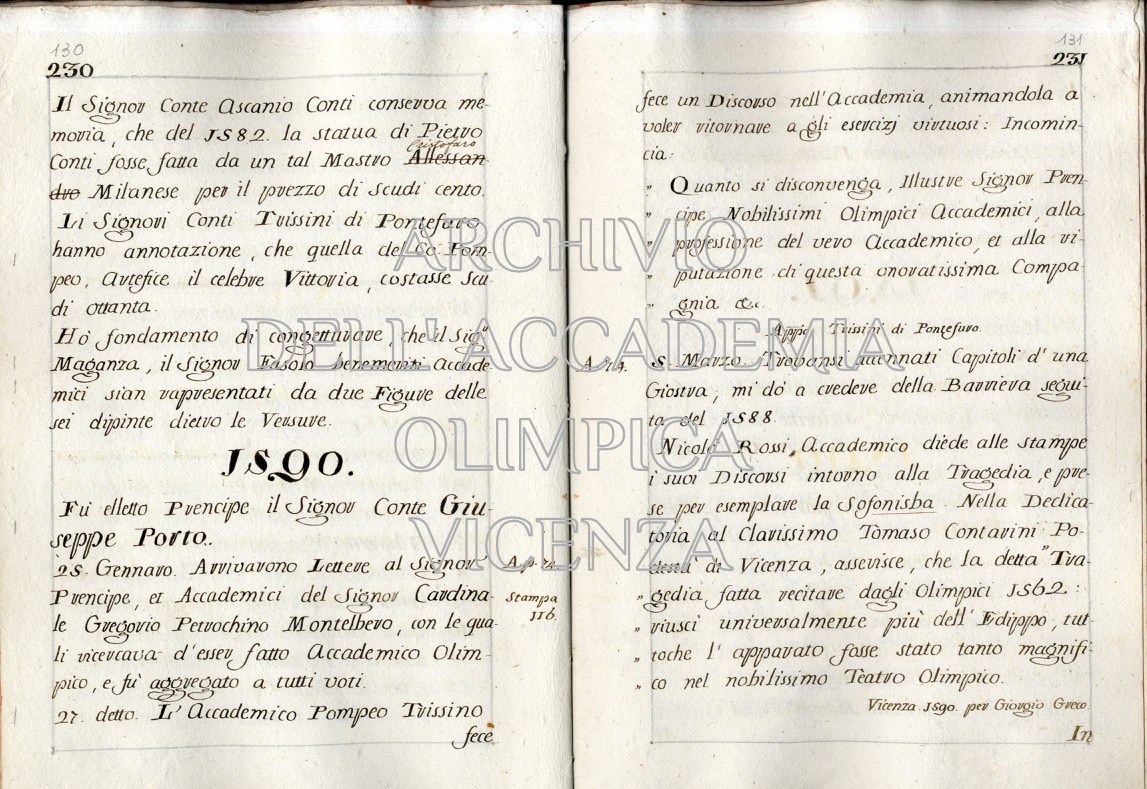 130
230
Il Signor Conte Ascanio Conti conserva me-
moria, che del 1582. la statua di Pietro
Cristofaro
Conti fosse fatta da un tal Mastro Allessan-
dro Milanese per il prezzo di Scudi cento.
Li Signori Conti Trissini di Pontefuro
hanno annotazione, che quella del Co: Pom-
peo, Artefice il celebre Vittoria, costasse Scu-
di ottanta.
Hò fondamento di congetturare, che il Sigr.
Maganza, il Signor Fasolo benemeriti Accade-
mici sian rapresentati da due Figure delle
sei dipinte dietro le Versure.
1590.
Fù elletto Prencipe il Signor Conte Giu-
seppe Porto.
25. Gennaro. Arrivarono Lettere al Signor
Prencipe, et Accademici del Signor Cardina-
le Gregorio Petrochino Montelbero, con le qua-
li ricercava d'esser fatto Accademico Olim-
pico, e fù aggregato a tutti voti.
27. detto. L'Accademico Pompeo Trissino
fece
A. p. 74
Stampa
116.
131
231
fece un Discorso nell'Accademia, animandola a
voler ritornare a gli esercizj virtuosi: Incomin-
cia:
" Quanto si disconvenga, Illustre Signor Pren-
" cipe Nobilissimi Olimpici Accademici, alla
" professione del vero Accademico, et alla ri-
" putazione di questa onoratissima Compa-
" gnia &c.
Appo Trissini di Pontefuro.
A. 74.
5. Marzo. Trovansi accennati Capitoli d'una
Giostra; mi dò a credere della Barriera segui-
ta del 1588.
Nicolò Rossi Accademico diede alle stampe
i suoi Discorsi intorno alla Tragedia, e pre-
se per esemplare la Sofonisba. Nella Dedica-
toria al Clarissimo Tomaso Contarini Po-
destà di Vicenza, asserisce, che la detta " Tra-
" gedia fatta recitare dagli Olimpici 1562:
" riuscì universalmente più dell'Edippo, tut-
" toche l'apparato fosse stato tanto magnifi-
" co nel nobilissimo Teatro Olimpico.
Vicenza 1590. per Giorgio Greco.
In
ARCHIVIO
DELL'ACCADEMIA
OLIMPICA
VICENZA